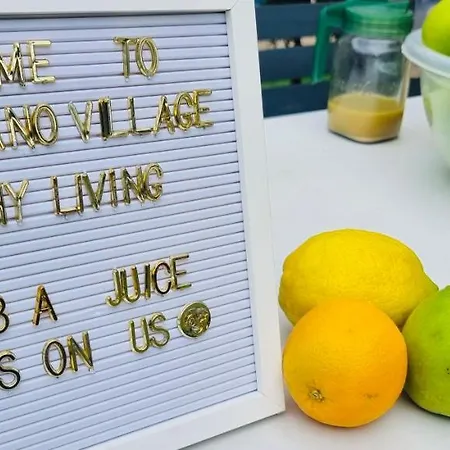 ME TO
ANO VILLAGE
NY LIVING
B A JUICE
S ON US